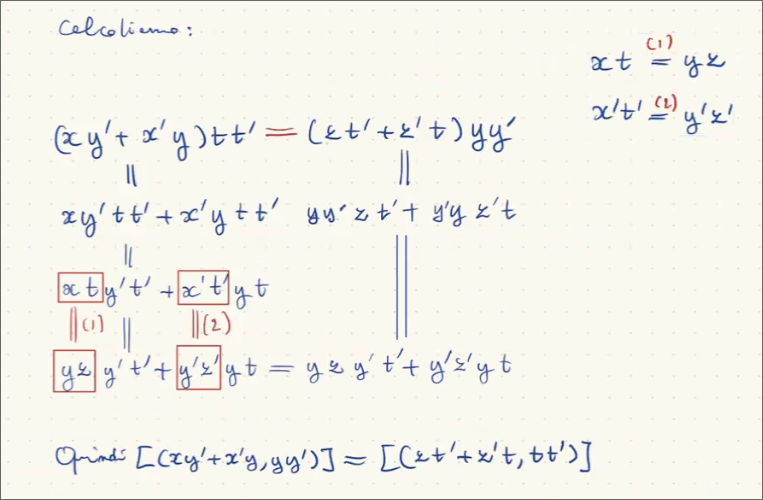 Calcoliamo:
xt (1)= yz
x't' (2)= y'z'
(xy' + x'y)tt' = (zt' + z't)yy'
|| ||
xy'tt' + x'ytt' yy'zt' + y'yz't
|| ||
xty't' + x't'yt
||(1) || ||(2)
yzy't' + y'z'yt = yzy't' + y'z'yt
Quindi [(xy'+x'y, yy')] = [(zt'+z't, tt')]